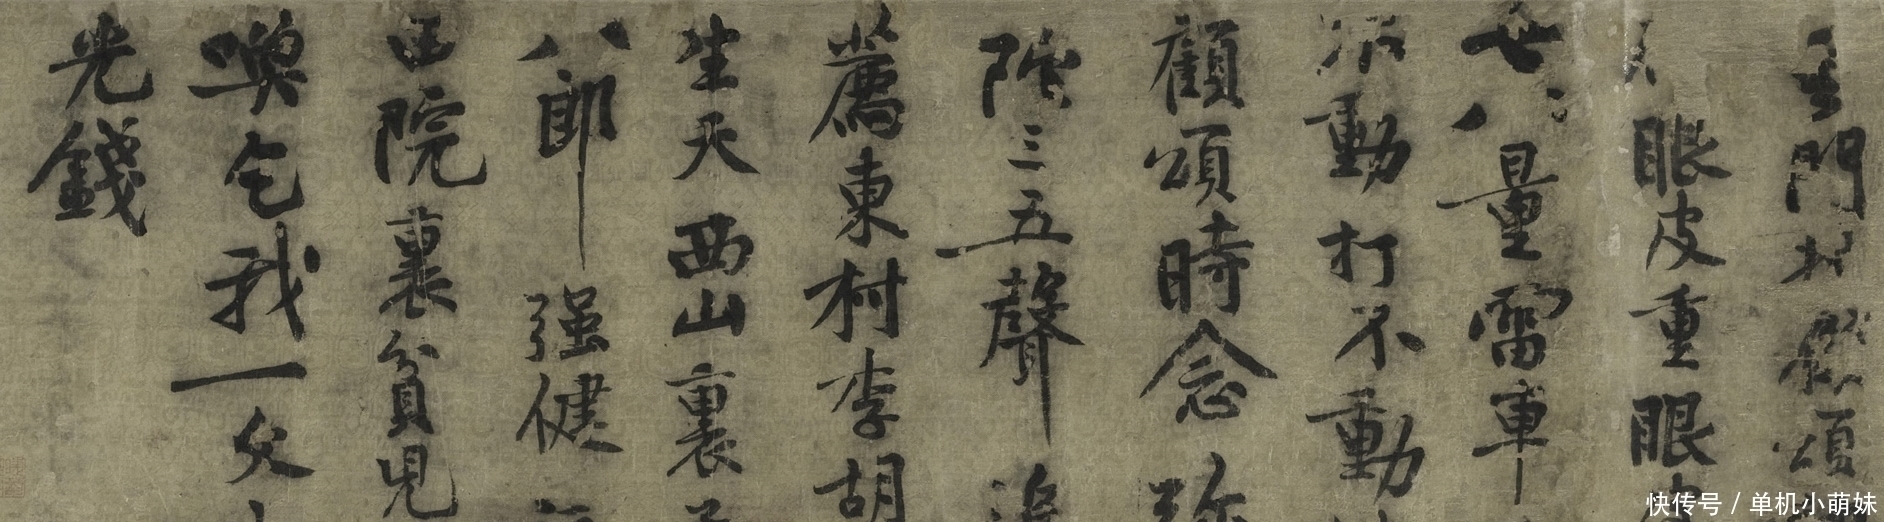 門頌
眼皮重眼
世八量雷車
動打不動
顧頌時念弥
陀三五聲追
薦東村李胡
生天西山裏
八郎强健
田院裏貧兒
喚乞我一文
光錢
快传号 / 单机小萌妹